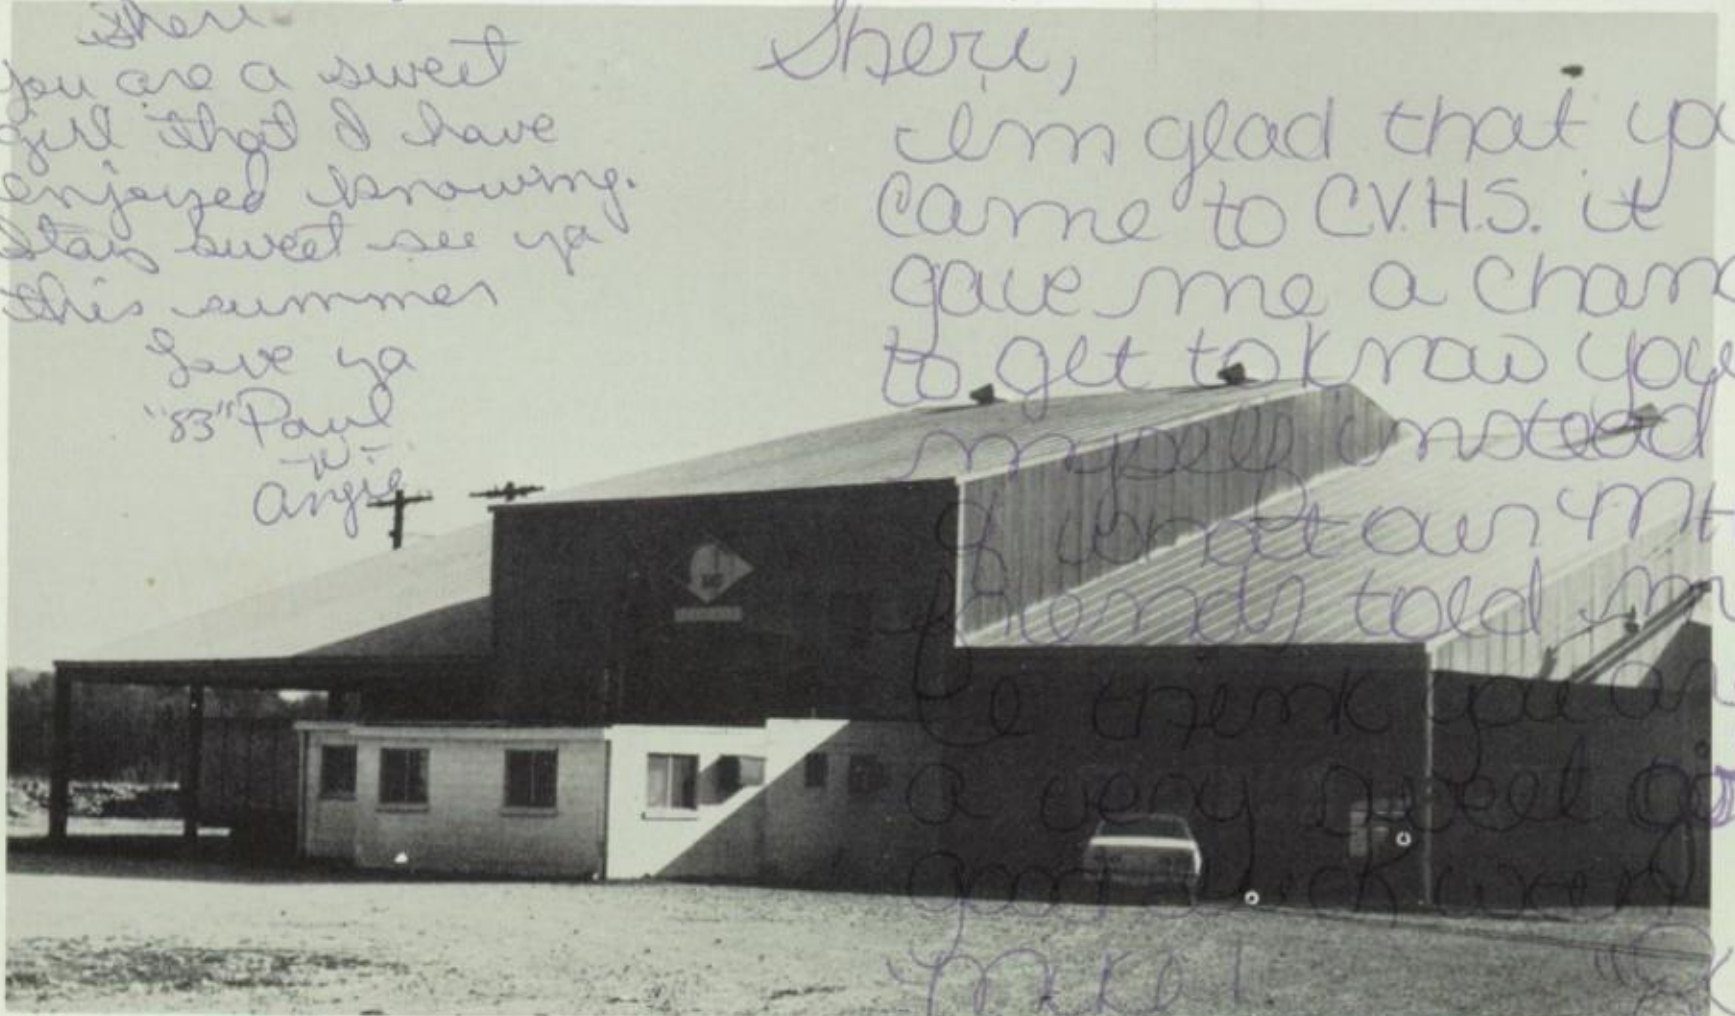 Sheri
you are a sweet
girl that I have
enjoyed knowing.
Stay sweet see ya
this summer
Love ya
"83" Paul
-n-
Angie
Sheri,
Im glad that yo
came to C.V.H.S. it
gave me a chan
to get to know you
myself instead
of what our
friends told m
I think you ar
a very sweet
good luck with
Mike!